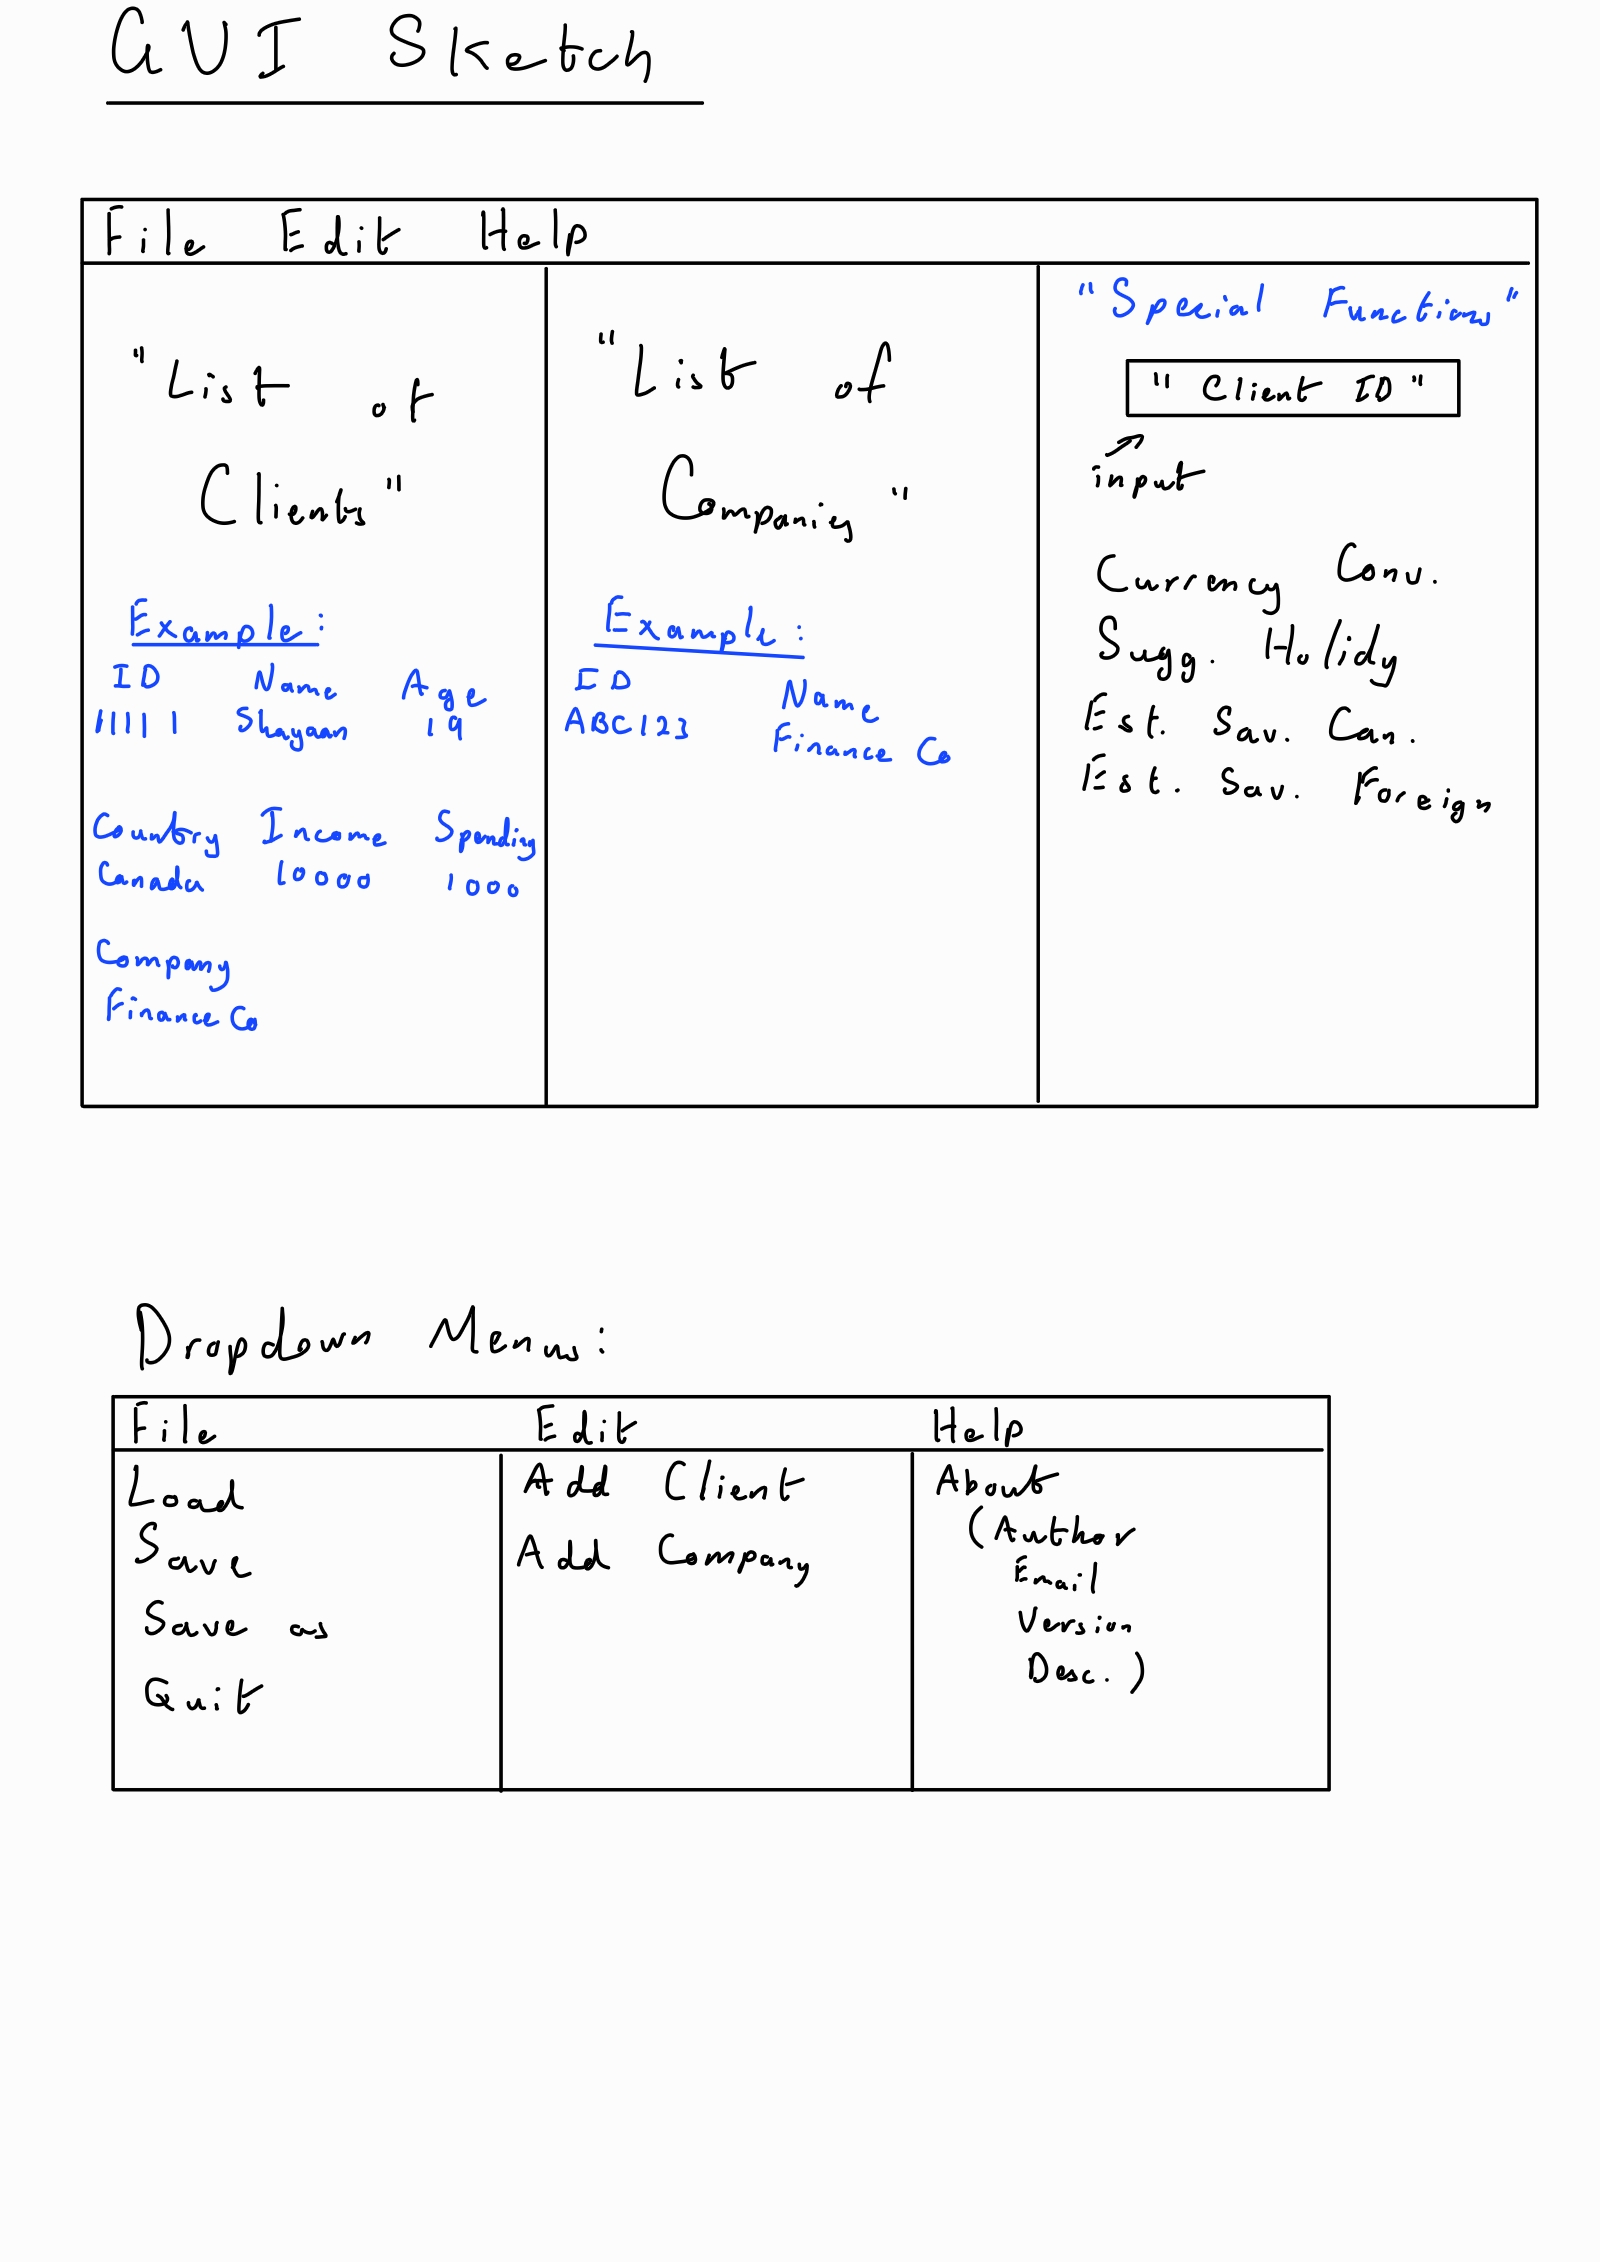 GUI Sketch
File Edit Help
"List of
Clients"
Example:
ID Name Age
11111 Shayaan 19
Country Income Spending
Canada 10000 1000
Company
Finance Co
"List of
Companies"
Example:
ID Name
ABC123 Finance Co
"Special Functions"
"Client ID"
input
Currency Conv.
Sugg. Holidy
Est. Sav. Can.
Est. Sav. Foreign
Dropdown Menus:
File Edit Help
Load
Save
Save as
Quit
Add Client
Add Company
About
(Author
Email
Version
Desc.)